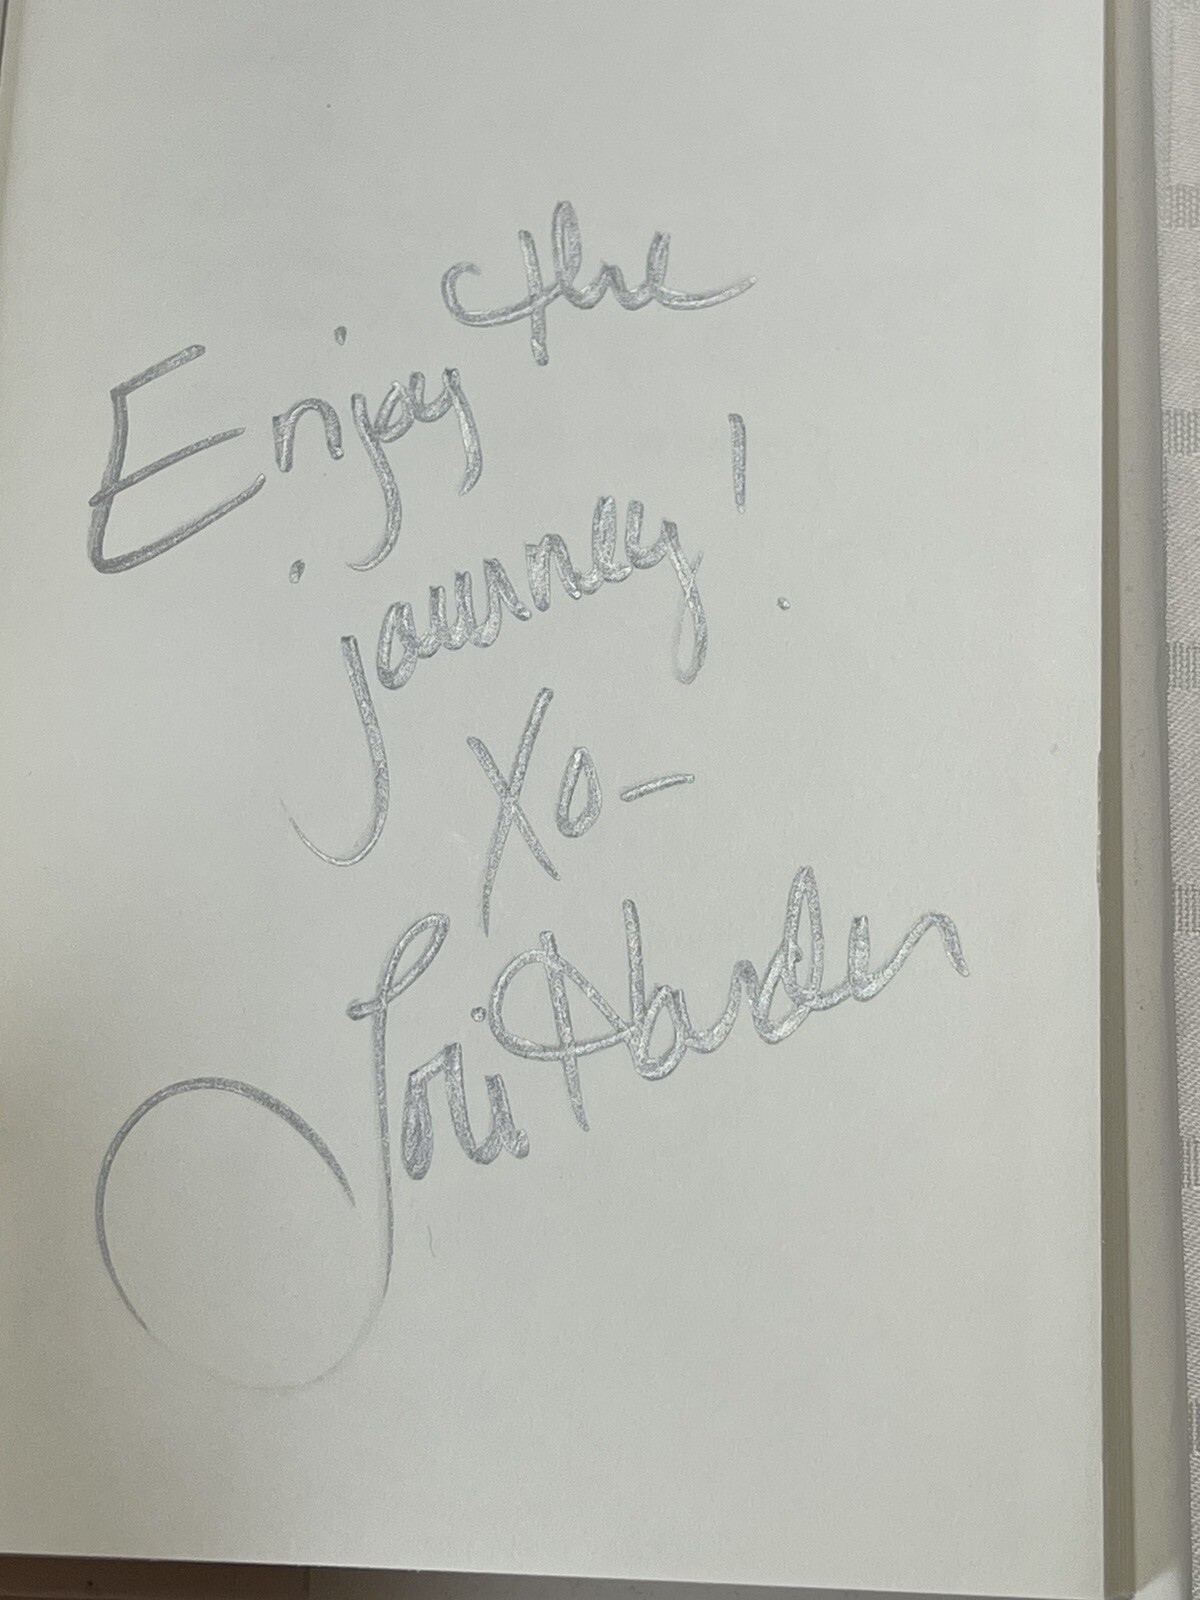 Enjoy the
journey!
XO-
Lori Harder